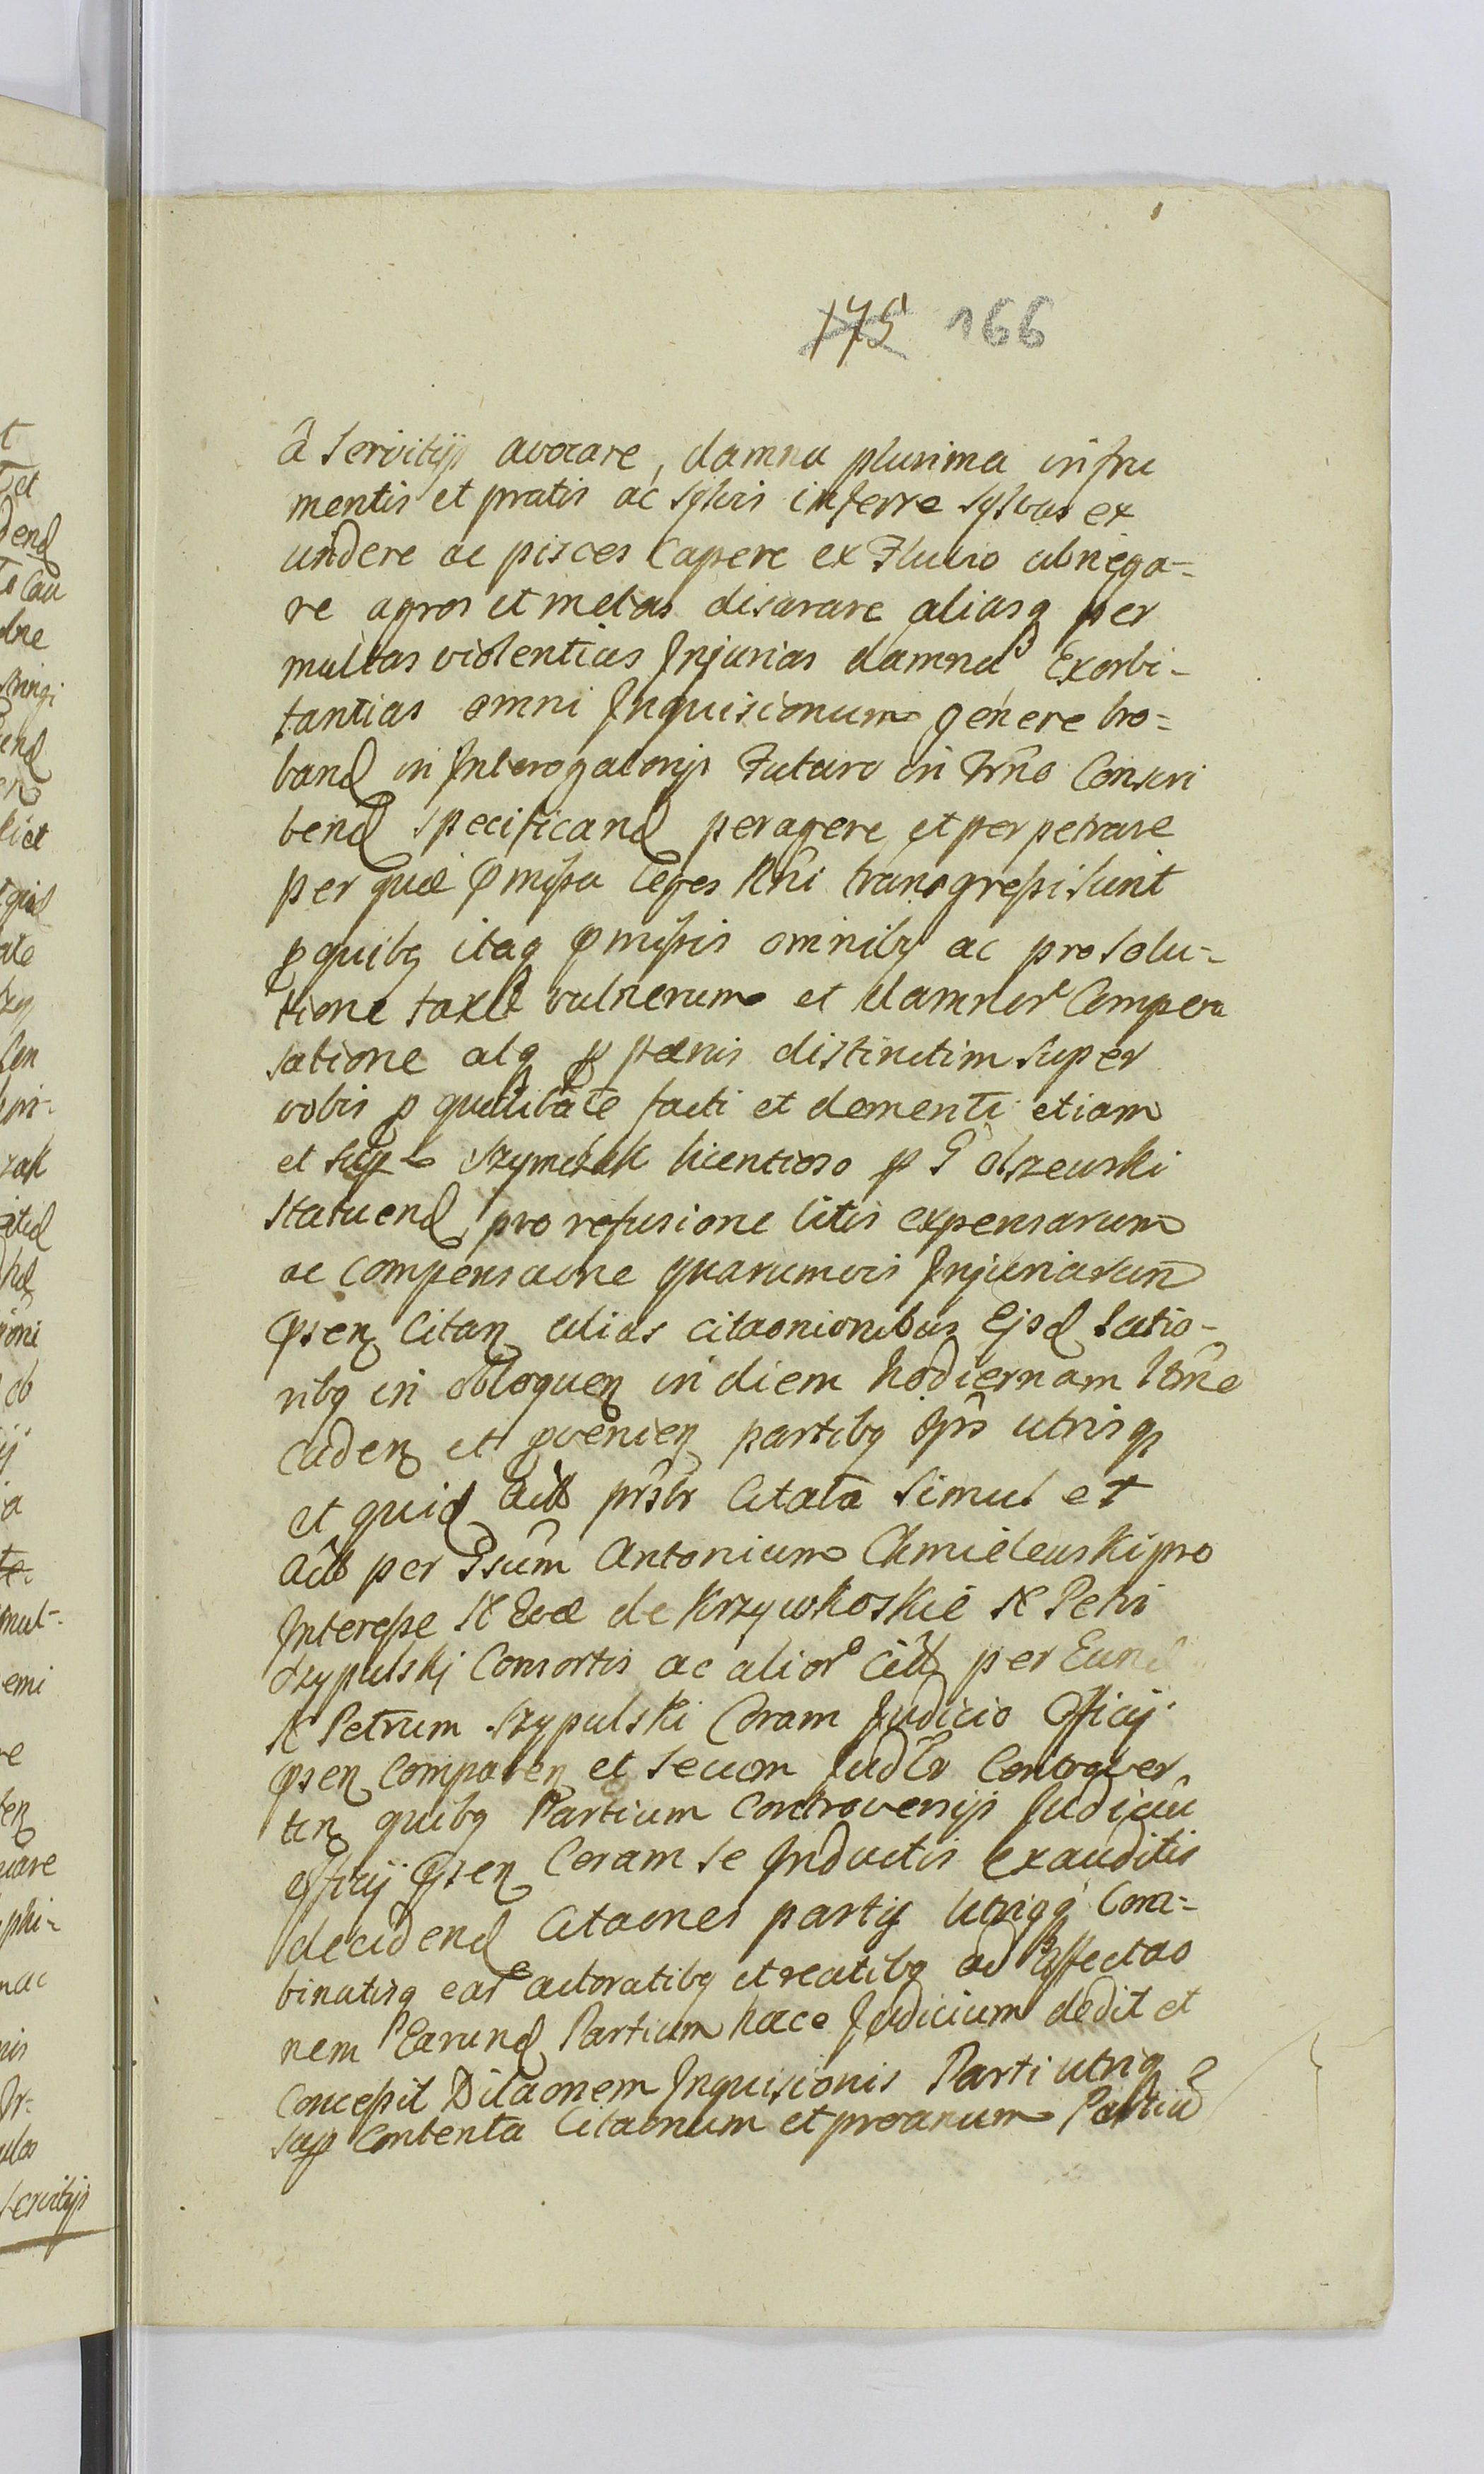 175 166
â Servitijs avocare, damna plurima in fru
mentis et pratis ac sylvis inferre sylvas ex
cindere ac pisces Capere ex Fluvio abnega-
re agros et metas disarare aliasq per
multas violentias Injurias damna Exorbi-
tantias omni Inquisicionum genere bro-
band in Interogatorijs Futuro in Trno Conscri
bend specificand peragere et perpetrare
per quæ pmissa Leges Rni transgressi sunt
p quibq itaq pmissis omnibq ac pro Solu-
tione taxæ vulnerum et damnor Compen
satione atq p pænis distinctim super
vobis p qualitate facti et dementi etiam
et Szymczak licentioso p G Olszewski
statuend pro refusione litis expensarum
ac compensaone quarumvis Injuriarum
psen Citan alias citaonionibus Ejsd ratio-
nibq in obloquen in diem hodiernam ltme
caden et pvenien partibq Iprs utrisq
et quid Act prstr Citata Simul et
Act per Gsum Antonium Chmielewski pro
Interesse N Evæ de Krzywkoskie N Petri
Szypulski Consortis ac alior Act per Eund
N Petrum Szypulski Coram Judicio Officij
psen Comparen et Secum Judlr Controver
ten quibq Partium Controversijs Judiciu
officij psen Coram se Inductis Exauditis
decidend Citaones partis utriqq Com-
binatisq eas actoratibq et reatibq ad Affectao
nem Earund Partium hace Judicium dedit et
Concessit Dilaonem Inquisicionis Parti utriq
sup Contenta Citaonum et proranum Partiu